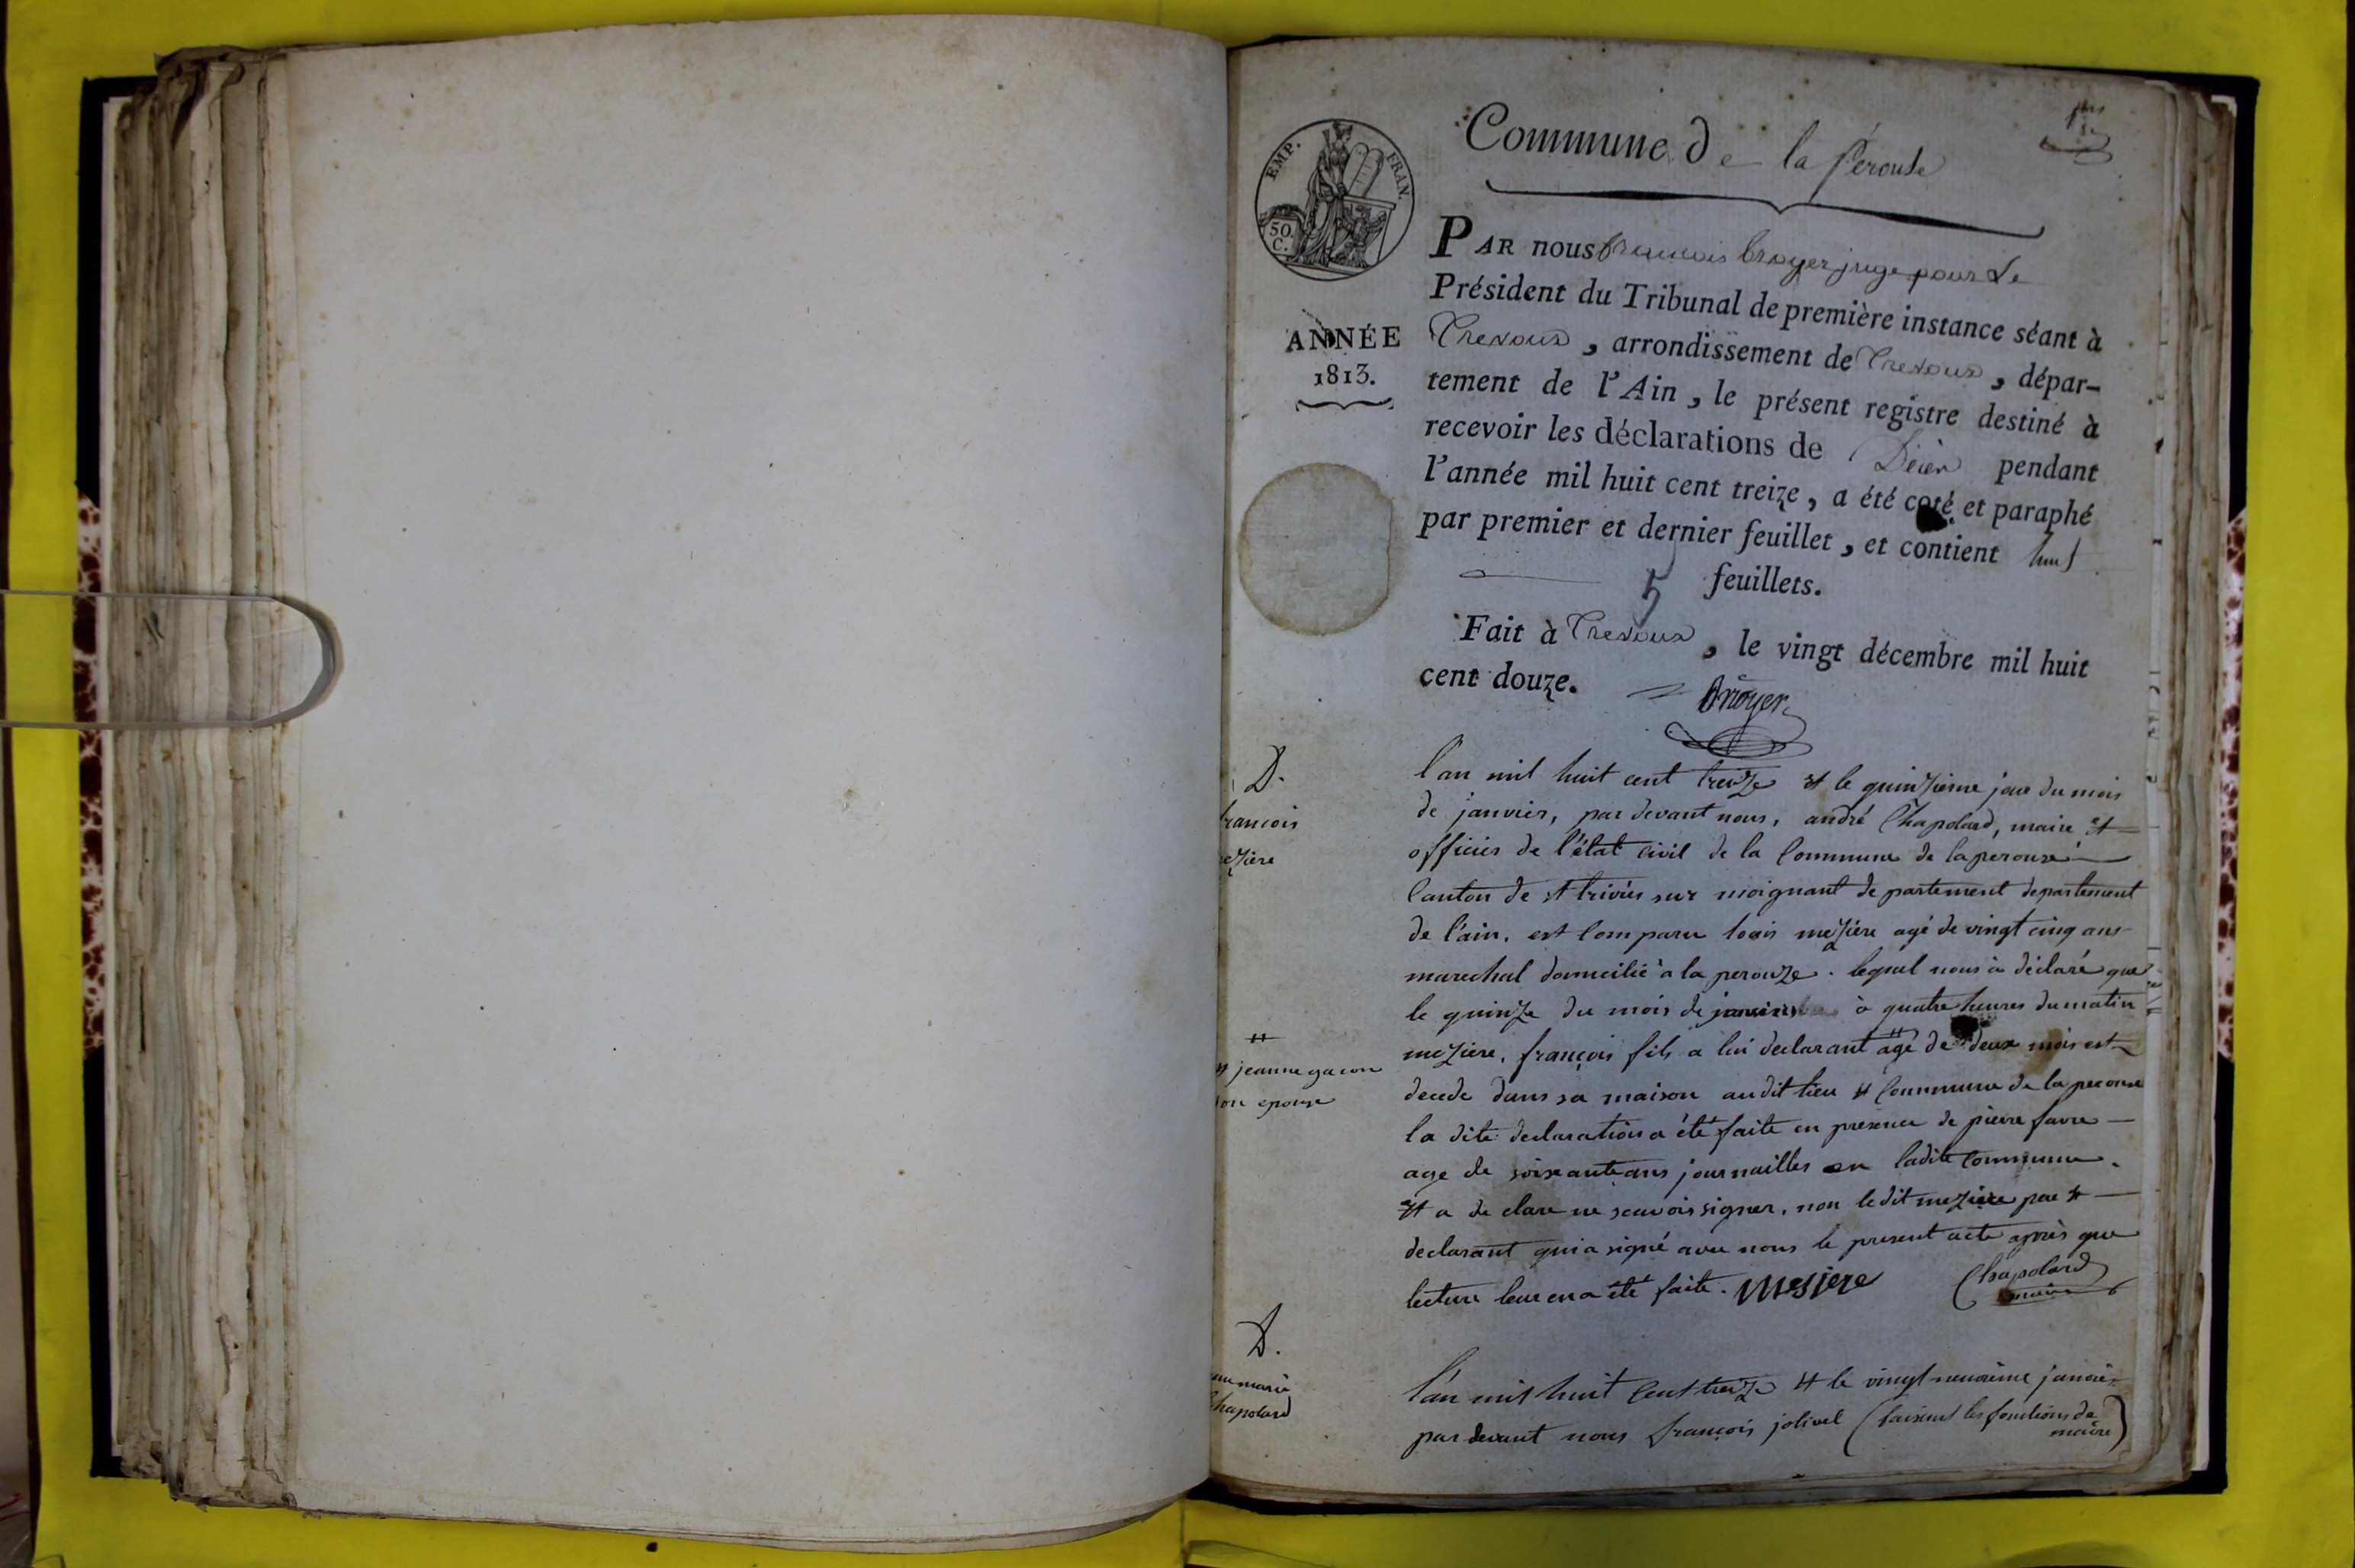 Commune de la Pérouse
EMP. FRAN.
50.
C.
ANNÉE
1813.
PAR nous françois broyer juge pour Le
Président du Tribunal de première instance séant à
Trevoux, arrondissement de Trevoux, dépar-
tement de l'Ain, le présent registre destiné à
recevoir les déclarations de Décès pendant
l'année mil huit cent treize, a été coté et paraphé
par premier et dernier feuillet, et contient huit
5 feuillets.
Fait à Trevoux, le vingt décembre mil huit
cent douze.
Broyer
D.
francois
mezière
l'an mil huit cent treize et le quinzieme jour du mois
de janvier, par devant nous, andré Chapolard, maire et
officier de l'état civil de la Commune de laperouze
Canton de st trivier sur moignant departement departement
de l'ain, est Comparu louis mezière agé de vingt cinq ans
marechal domicilié à la perouze. lequel nous à déclaré que
le quinze du mois de janvier à quatre heures du matin
meziere, françois fils a lui declarant agé de deux mois est
decede dans sa maison au dit lieu et Commune de la perouse
la dite declaration a été faite en presence de pierre favre
age de soixante ans journailler en ladite Commune.
et a de clare ne scavoir signer, non le dit meziere pere et
declarant qui a signé avec nous le present acte après que
lecture leur en a été faite. Mesjere Chapolard
maire
# jeanne gacon
son epouse
D.
marie
Chapolard
L'an mil huit Cent treize et le vingt neuvieme janvier
par devant nous françois jolivel (faisant les fonctions de
maire)